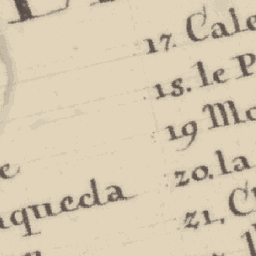 17. Cale
18. le P
19 Mo
20. la
21. C
e
aqueda